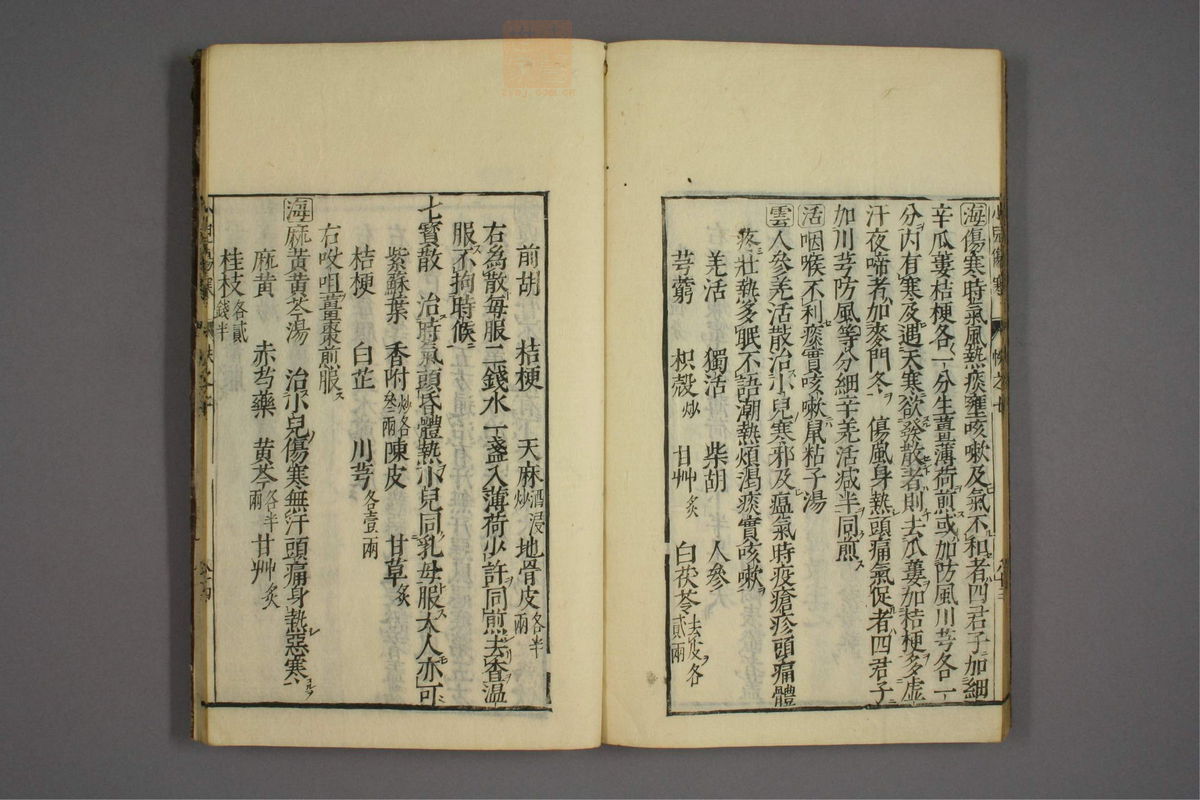 海傷寒時氣風熱痰壅咳嗽及氣不和者四君子加細
辛瓜蔞桔梗各一分生薑薄荷煎或加防風川芎各一
分內有寒及遇天寒欲發散者則去瓜蔞加桔梗多虛
汗夜啼者加麥門冬 傷風身熱頭痛氣促者四君子
加川芎防風等分細辛羌活减半同煎
活咽喉不利痰實咳嗽鼠粘子湯
雲人參羌活散治小兒寒邪及瘟氣時疫瘡疹頭痛體
疼壯熱多眠不語潮熱煩渴痰實咳嗽
羌活 獨活 柴胡 人參
芎藭 枳殼炒 甘艸炙 白茯苓去皮各貳兩
前胡 桔梗 天麻酒浸炒 地骨皮各半兩
右爲散每服一錢水一盞入薄荷少許同煎去查温
服不拘時候
七寳散 治時氣頭昏體熱小兒同乳母服大人亦可
紫蘇葉 香附炒各叁兩 陳皮 甘草炙
桔梗 白芷 川芎各壹兩
右㕮咀薑棗煎服
海麻黃黃芩湯 治小兒傷寒無汗頭痛身熱惡寒
麻黃 赤芍藥 黃芩各半兩 甘艸炙
桂枝各貳錢半